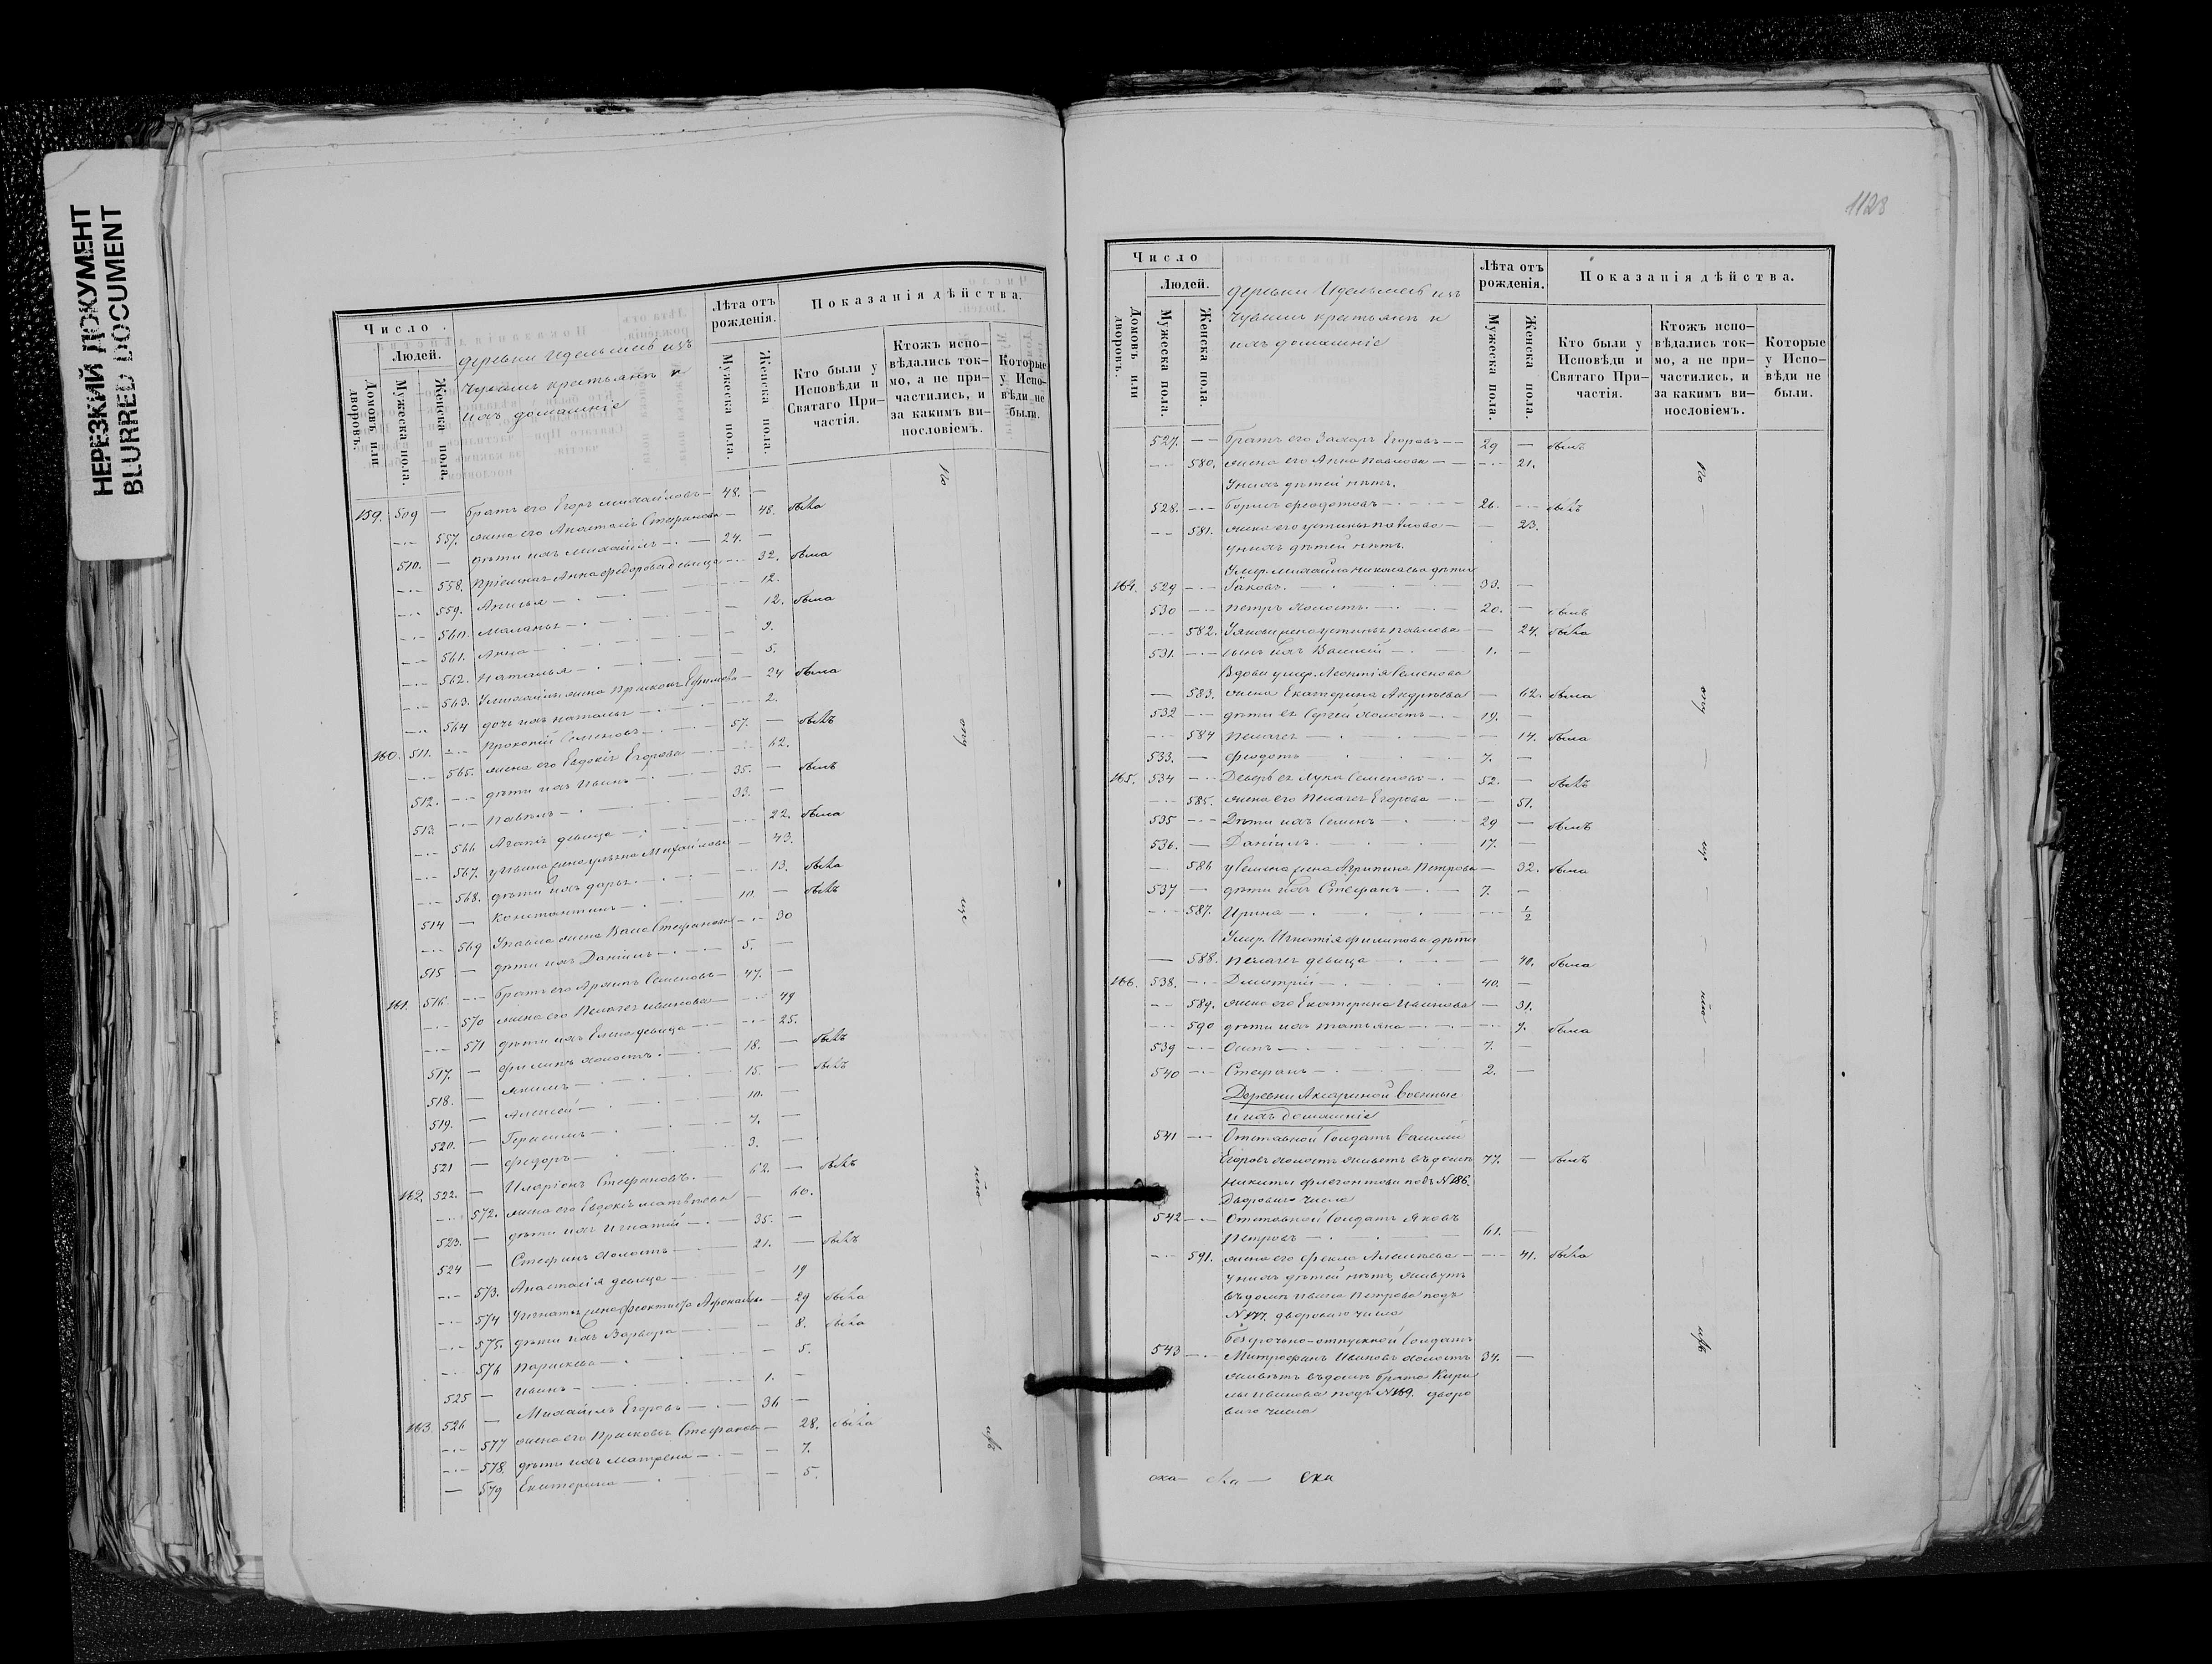 НЕРЕЗКИЙ ДОКУМЕНТ
BLURRED DOCUMENT
Число
Людей.
Домовъ или дворовъ.
Мужеска пола.
Женска пола.
деревни изъ
Чувашъ крестьяне и
ихъ домашніе
Лѣта отъ рожденія.
Мужеска пола.
Женска пола.
Показанія дѣйства.
Кто были у Исповѣди и Святаго Причастія.
Ктожъ исповѣдались токмо, а не причастились, и за какимъ винословіемъ.
Которые у Исповѣди не были.
159. 509 — братъ его Егоръ Михайловъ — 48. —
557. жена его Анастасія Стефанова — 48. была
510. — дѣти ихъ Михаилъ — 24. —
558. Анна Федорова девица — 32. была
559. — 12.
560. Маланья — 12. была
561. Анна — 9.
562. Наталья — 5.
563. У Михаила жена Ефимова — 24 была
564 дочь ихъ Наталья — 2.
160. 511. Прокопій Семеновъ — 57. — былъ
565. жена его Евдокія Егорова — 62.
512. дѣти ихъ Иванъ — 35. — былъ
513. Павелъ — 33. —
566 девица — 22. была
567. у Ивана жена Ульяна Михайлова — 43.
568. дѣти ихъ Дарья — 13. была
514 — Константинъ — 10. — былъ
569 У Павла жена Стефанова — 30
515 — дѣти ихъ Даніилъ — 5. —
161. 516. братъ его Архипъ Семеновъ — 47. —
570 жена его Пелагея Иванова — 49
571 дѣти ихъ Елена девица — 25.
517. — Филипъ холостъ — 18. — былъ
518. — Якимъ — 15. — былъ
519. — Алексей — 10. —
520. — Герасимъ — 7. —
521 — Федоръ — 3. —
162. 522. — Иларіонъ Стефановъ. 62. — былъ
572. жена его Евдокія Матвѣева — 60.
523. — дѣти ихъ Игнатій — 35. —
524 — Стефанъ холостъ — 21. — былъ
573. Анастасія девица — 19
574 У Игнатья жена Феоктиста Афонасьева — 29 была
575. дѣти ихъ Варвара — 8. была
576 Параскева — 5.
525 — Иванъ — 1. —
163. 526 — Михаилъ Егоровъ — 36 —
577 жена его Прасковья Стефанова — 28. была
578. дѣти ихъ Матрена — 7.
579 Екатерина — 5.
1128
Число
Людей.
Домовъ или дворовъ.
Мужеска пола.
Женска пола.
деревни изъ
Чувашъ крестьяне и
ихъ домашніе
Лѣта отъ рожденія.
Мужеска пола.
Женска пола.
Показанія дѣйства.
Кто были у Исповѣди и Святаго Причастія.
Ктожъ исповѣдались токмо, а не причастились, и за какимъ винословіемъ.
Которые у Исповѣди не были.
527. братъ его Захаръ Егоровъ — 29 — былъ
580. жена его Анна Павлова — 21.
У нихъ дѣтей нѣтъ.
528. Борисъ Феодотовъ — 26. — былъ
581. жена его Устинья Павлова — 23.
у нихъ дѣтей нѣтъ.
Умер. Михайла Николаева дѣти
164. 529 Яковъ. — 33. —
530 Петръ холостъ. — 20. — былъ
582. У Якова жена Устинья Павлова — 24. была
531. сынъ ихъ Василій — 1. —
Вдова умер. Леонтія Семенова
583. жена Екатерина Андреева — 62. была
532 дѣти ея Сергей холостъ — 19. —
584 Пелагея — 14. была
533. — Феодотъ 7. —
165. 534 Деверь ея Лука Семеновъ — 52. — былъ
585. жена его Пелагея Егорова — 51.
535 Дѣти ихъ Семенъ — 29 — былъ
536. — Даніилъ. — 17. —
586 у Семена жена Агрипина Петрова — 32. была
537 — дѣти ихъ Стефанъ — 7. —
587. Ирина — 1/2
Умер. Игнатія Филипова дѣти
588. Пелагея девица — 40. была
166. 538. Дмитрій — 40. —
589. жена его Екатерина Иванова — 31.
590 дѣти ихъ Татьяна — 9. была
539 Осипъ — 7. —
540 Стефанъ — 2. —
Деревни военные
и ихъ домашніе
541 Отставной солдатъ Василій
Егоровъ холостъ живетъ въ домѣ 77. — былъ
Никиты Флегонтова подъ №186.
Двороваго числа
542 Отставной солдатъ Яковъ
Петровъ — 61. —
591. жена его Фекла Алексеева — 41. была
у нихъ дѣтей нѣтъ, живутъ
въ домѣ Ивана Петрова подъ
№177. двороваго числа
Безсрочно-отпускной солдатъ
543 Митрофанъ Ивановъ холостъ 34. —
живетъ въ домѣ брата Кири
лы Иванова подъ №169. дворо
ваго числа